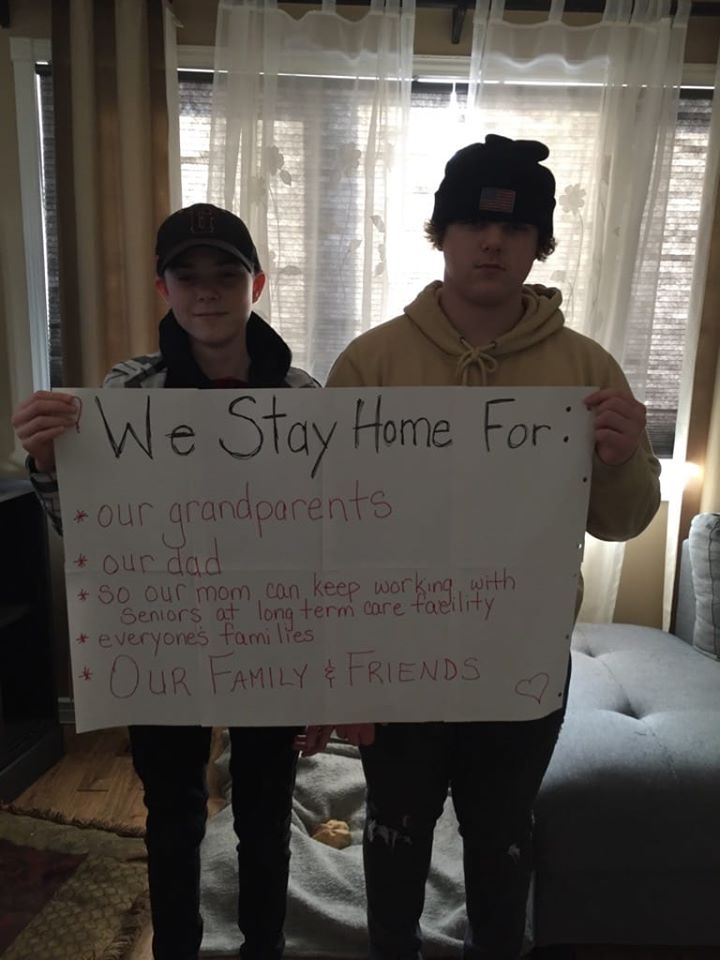 We Stay Home For:
* our grandparents
* our dad
* so our mom can keep working with
seniors at long term care facility
* everyone's families
* OUR FAMILY & FRIENDS